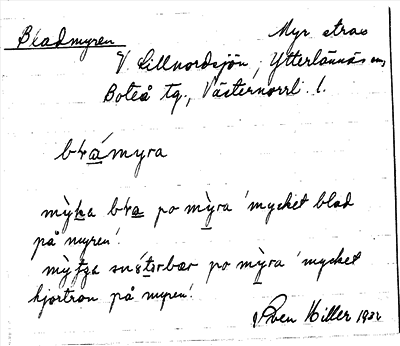 Bladmyren Myr strax
V. Lillnordsjön, Ytterlännäs sn,
Boteå tg., Västernorrl. l.
bɫámyra
mỳka bɫa po mỳra 'mycket blad
på myren'.
po mỳra 'mycket
hjortron på myren'.
Sven Hiller 1932